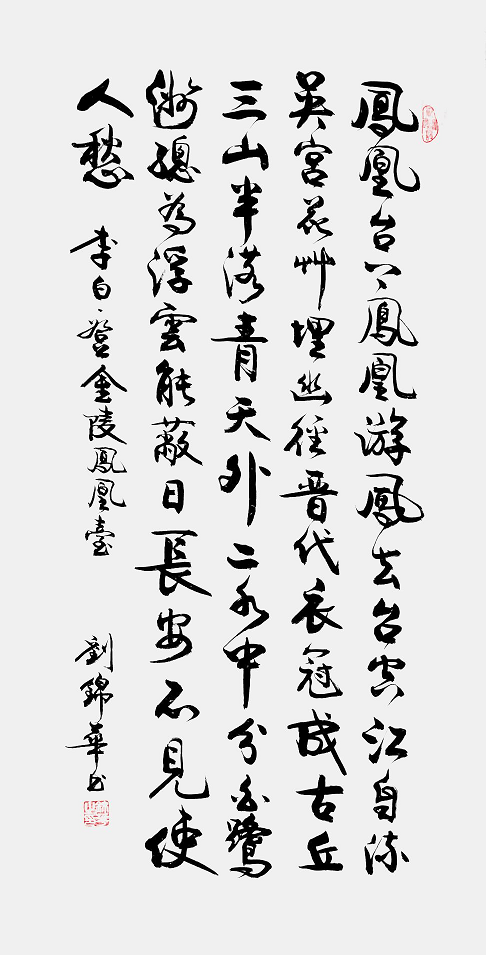 鳳凰台上鳳凰游鳳去台空江自流
吴宮花艸埋幽徑晉代衣冠成古丘
三山半落青天外二水中分白鷺
洲總為浮雲能蔽日長安不見使
人愁 李白登金陵鳳凰臺 劉錦華书